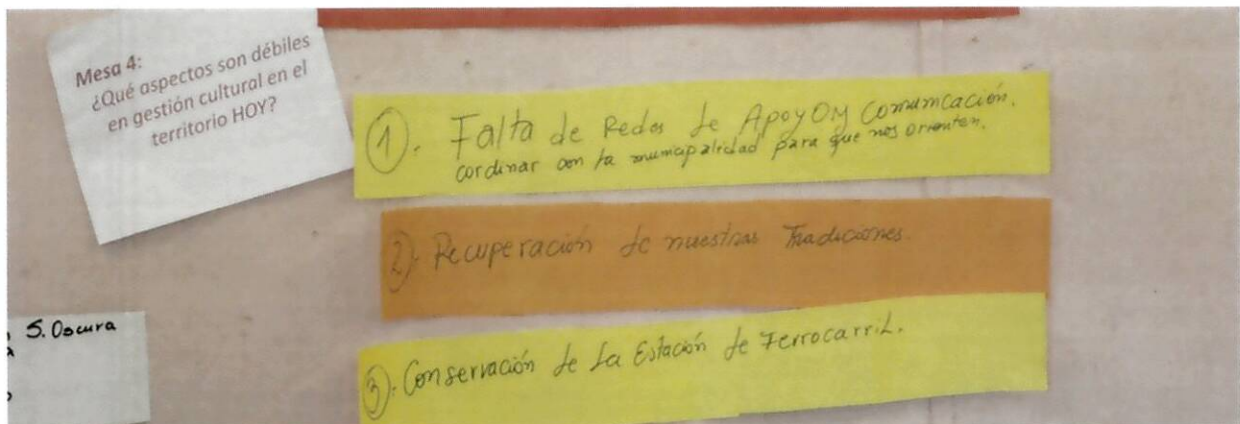 Mesa 4:
¿Qué aspectos son débiles
en gestión cultural en el
territorio HOY?
1. Falta de Redes de Apoyo y Comunicación.
cordinar con la municipalidad para que nos orienten.
2). Recuperación de nuestras Tradiciones.
3). Conservación de la Estación de Ferrocarril.
S. Oscura